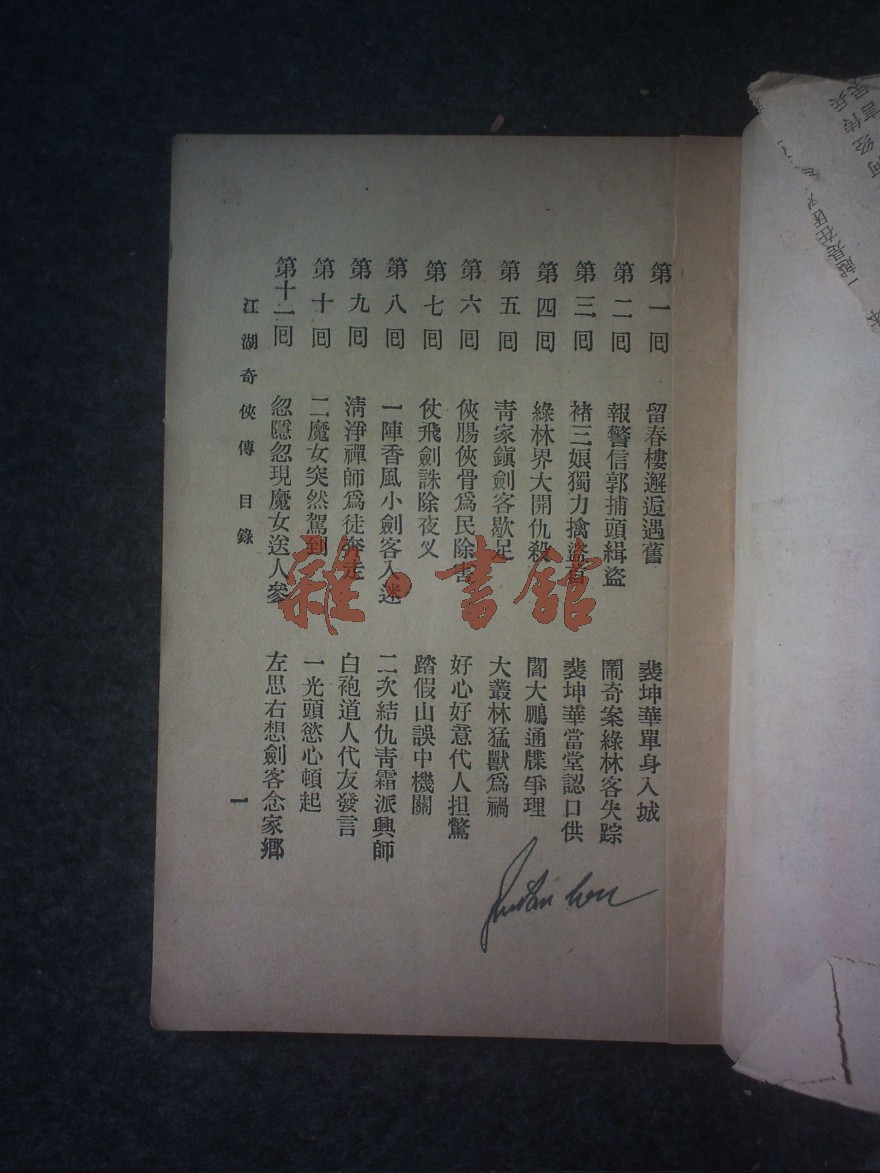 第一回　留春樓邂逅遇舊　裴坤華單身入城
第二回　報警信郭捕頭緝盜　鬧奇案綠林客失踪
第三回　褚三娘獨力擒盜首　裴坤華當堂認口供
第四回　綠林界大開仇殺　閣大鵬通牒爭理
第五回　青家鎮劍客歇足　大叢林猛獸爲禍
第六回　俠腸俠骨爲民除害　好心好意代人担驚
第七回　仗飛劍誅除夜叉　踏假山誤中機關
第八回　一陣香風小劍客入迷　二次結仇青霜派興師
第九回　清淨禪師爲徒奔走　白袍道人代友發言
第十回　二魔女突然駕到　一光頭慾心頓起
第十一回　忽隱忽現魔女送人參　左思右想劍客念家鄉
江湖奇俠傳　目錄　一
雜·書館